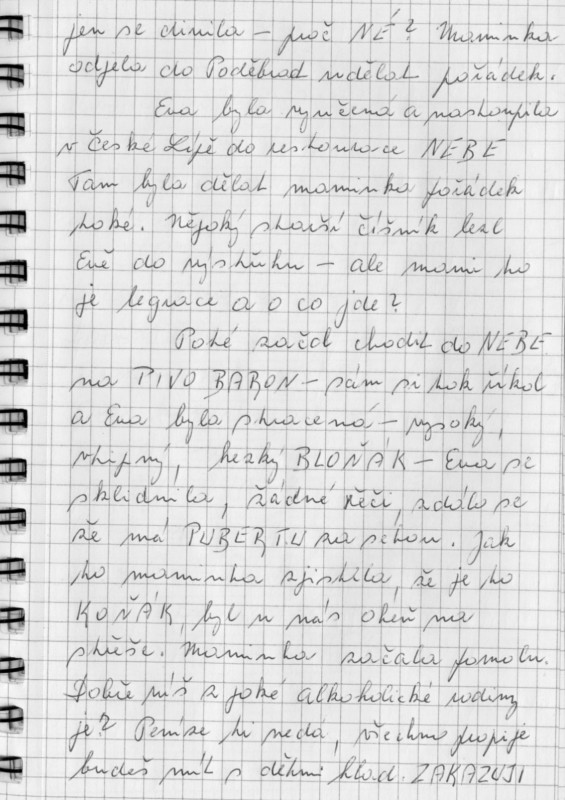 jen se divila – proč NÉ? Maminka
odjela do Poděbrad udělat pořádek.
Eva byla vyučená a nastoupila
v České Lípě do restaurace NEBE
Tam byla dělat maminka pořádek
také. Nějaký starší číšník lezl
Evě do výstřihu – ale mami to
je legrace a o co jde?
Také začal chodit do NEBE
na PIVO BARON – sám si tak říkal
a Eva byla ztracená – vysoký,
vtipný, hezký BLOŇÁK – Eva se
sklidnila, žádné řeči, zdálo se
že má PUBERTU za sebou. Jak
to maminka zjistila, že je to
KOŇÁK, byl u nás oheň na
střeše. Maminka začala pomalu.
Dobře víš z jaké alkoholické rodiny
je? Peníze ti nedá, všechno propije
budeš mít s dětmi hlad. ZAKAZUJI